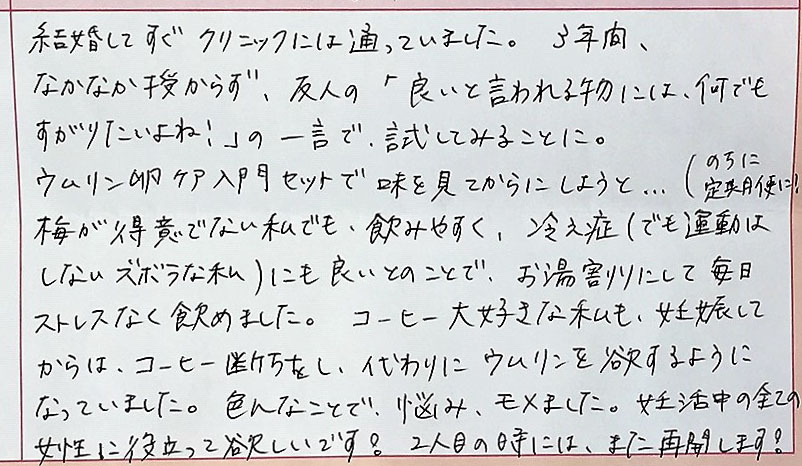 結婚してすぐクリニックには通っていました。3年間、
なかなか授からず、友人の「良いと言われる物には、何でも
すがりたいよね!」の一言で、試してみることに。
ウムリン卵ケア入門セットで味を見てからにしようと…(のちに定期便に!
梅が得意でない私でも、飲みやすく、冷え症(でも運動は
しないズボラな私)にも良いとのことで、お湯割りにして毎日
ストレスなく飲めました。コーヒー大好きな私も、妊娠して
からは、コーヒー断ちをし、代わりにウムリンを欲するように
なっていました。色んなことで、悩み、モメました。妊活中の全ての
女性に役立って欲しいです!2人目の時には、また再開します!